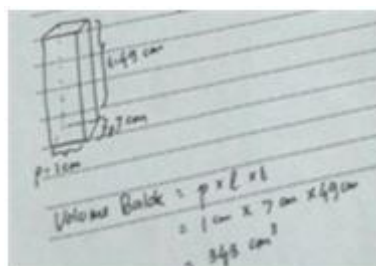 t:49 cm
l:7 cm
p=1cm
Volume Balok = p x l x t
= 1 cm x 7 cm x 49 cm
= 343 cm³